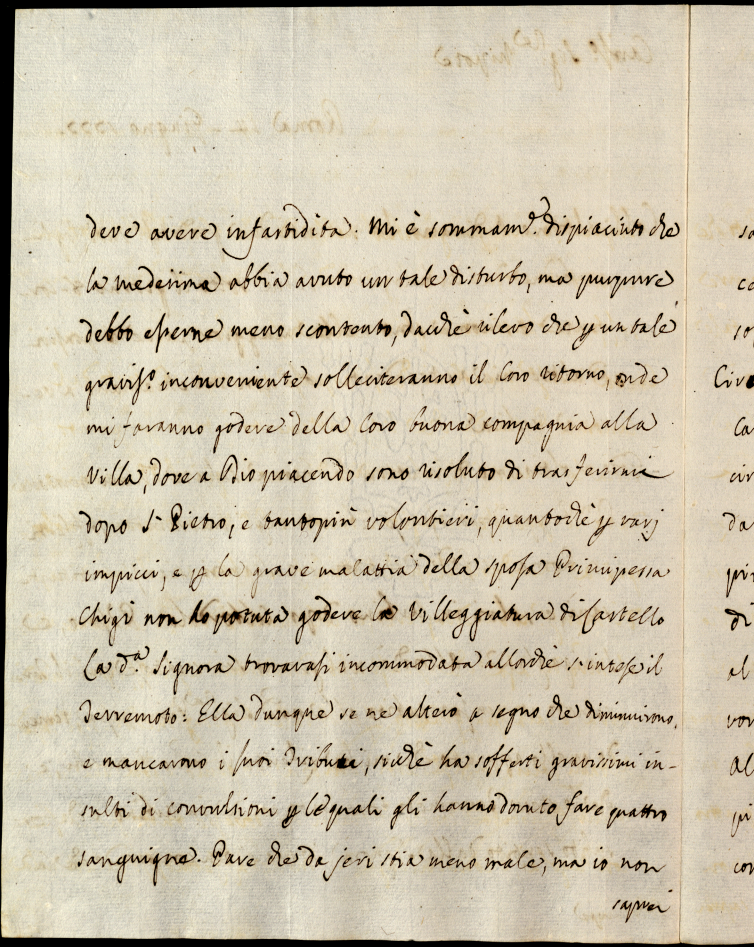 deve avere infastidita. Mi è sommam.e dispiaciuto che
la medesima abbia avuto un tale disturbo, ma purpure
debbo esserne meno scontento, dacchè rilevo che p un tale
graviss.o inconveniente solleciteranno il loro ritorno, onde
mi faranno godere della loro buona compagnia alla
Villa, dove a Dio piacendo sono risoluto di trasferirmi
dopo S. Pietro, e tantopiù volontieri, quantochè p varj
impicci, e p la grave malattia della sposa Principessa
Chigi non ho potuta godere la Villeggiatura di Castello
La d.a Signora trovavasi incommodata allorchè s'intese il
Terremoto: Ella dunque se ne alterò a segno che diminuirono,
e mancarono i suoi Tributi, sicchè ha sofferti gravissimi in-
sulti di convulsioni p le quali gli hanno dovuto fare quattro
sanguigne. Pare che da jeri stia meno male, ma io non
saprei